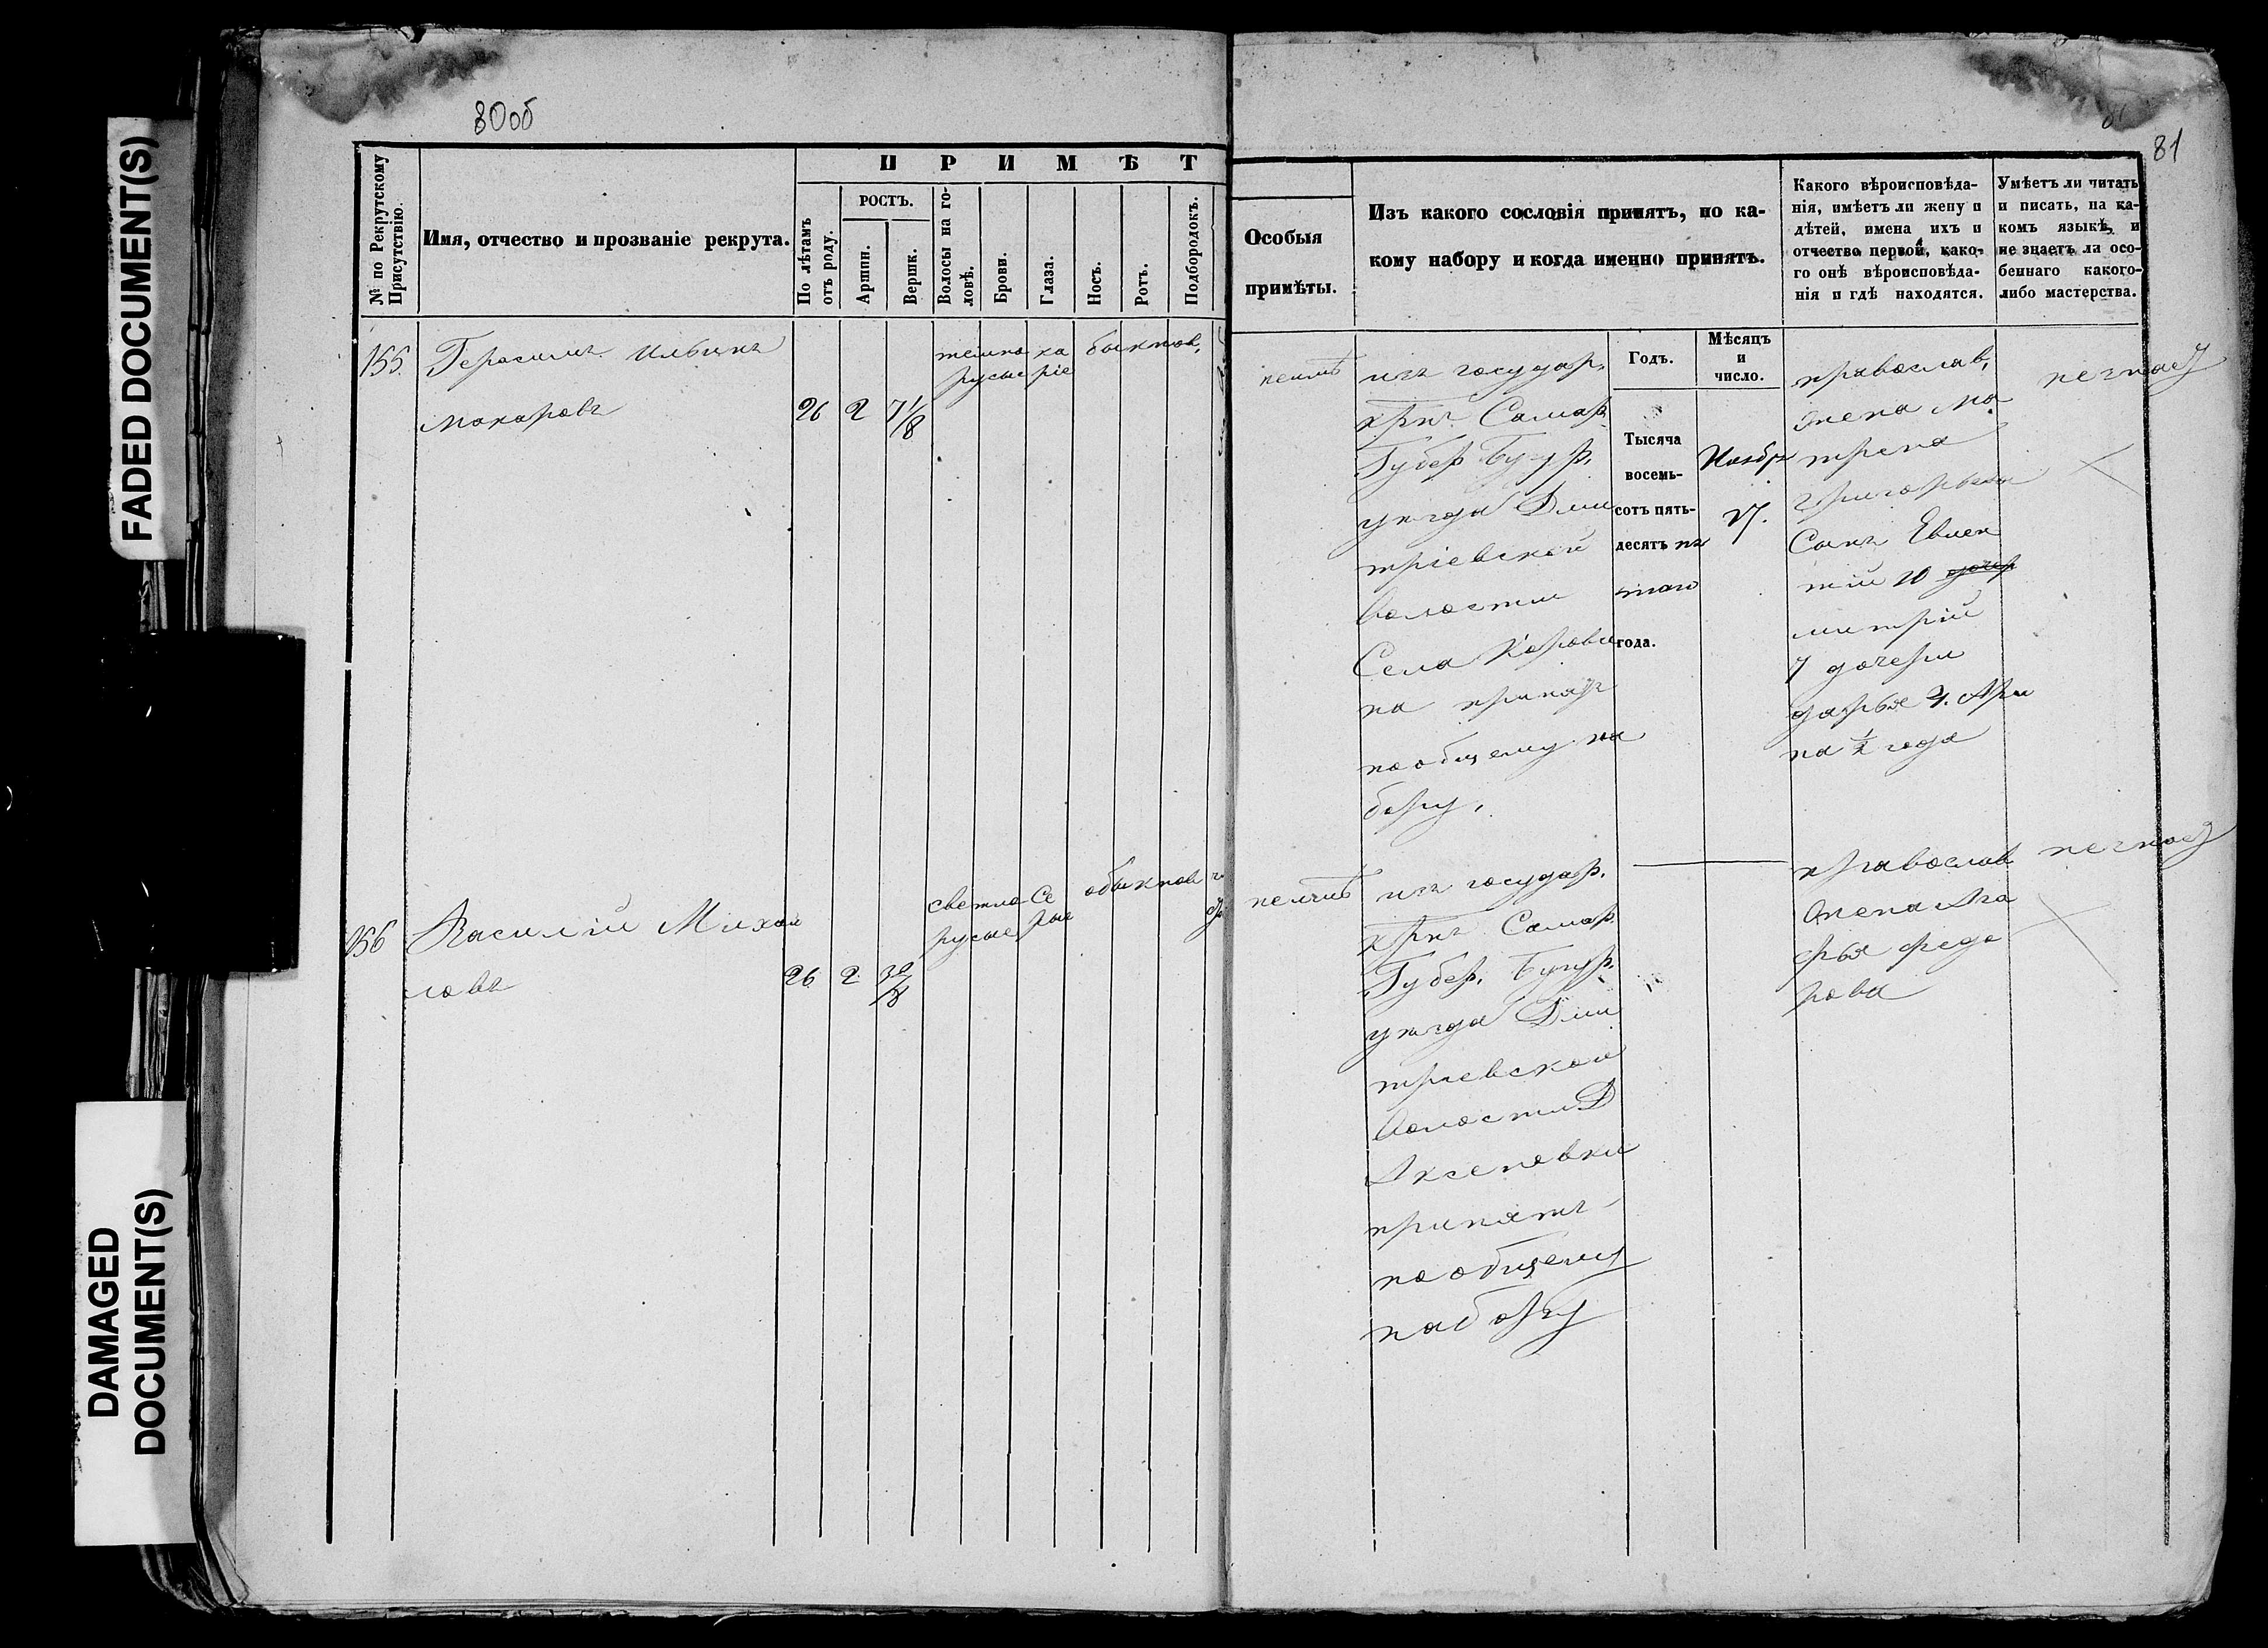 FADED DOCUMENT(S)
DAMAGED
DOCUMENT(S)
80об
81
№ по Рекрутскому
Присутствію.
Имя, отчество и прозваніе рекрута.
П Р И М Ѣ Т
По лѣтамъ
отъ роду.
РОСТЪ.
Аршин.
Вершк.
Волосы на го-
ловѣ.
Брови.
Глаза.
Носъ.
Ротъ.
Подбородокъ.
Особыя
примѣты.
Изъ какого сословія принятъ, по ка-
кому набору и когда именно принятъ.
Какого вѣроисповѣда-
нія, имѣетъ ли жену и
дѣтей, имена ихъ и
отчество первой, како-
го онѣ вѣроисповѣда-
нія и гдѣ находятся.
Умѣетъ ли читать
и писать, на ка-
комъ языкѣ, и
не знаетъ ли осо-
беннаго какого-
либо мастерства.
155.
Герасимъ Ильинъ
Макаровъ
26
2
7 1/8
темно
русые
ка
ріе
быкнов.
неимѣ
изъ государ.
крнъ Самар.
Губер Бугур.
уѣзда Дми
тріевской
волости
Села Корови
на принятъ
пообщему на
бору.
Годъ.
Мѣсяцъ
и
число.
Тысяча
восемь-
сотъ пять-
десятъ пя
таго
года.
Ноябр
православ.
жена Ма
трена
григорьева
Сынъ Евлен
тій 10
митрій
7 дочери
дарья 4. Ари
на 1/2 года
незнает
156
Василій Михаи
ловъ
26
2
светло
русые
Се
рые
обыкнов
неимѣ
изъ государ.
крнъ Самар
Губер. Бугур.
уѣзда Дми
тріевской
волости Д
Аксеновки
принятъ
пообщему
набору
православ
жена Ага
фья федо
рова
незнает